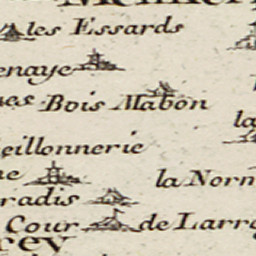 les Essards
enaye
es Bois Mabon
la
eillonnerie
ne
la Norn
radis
Cour de Larr
rey